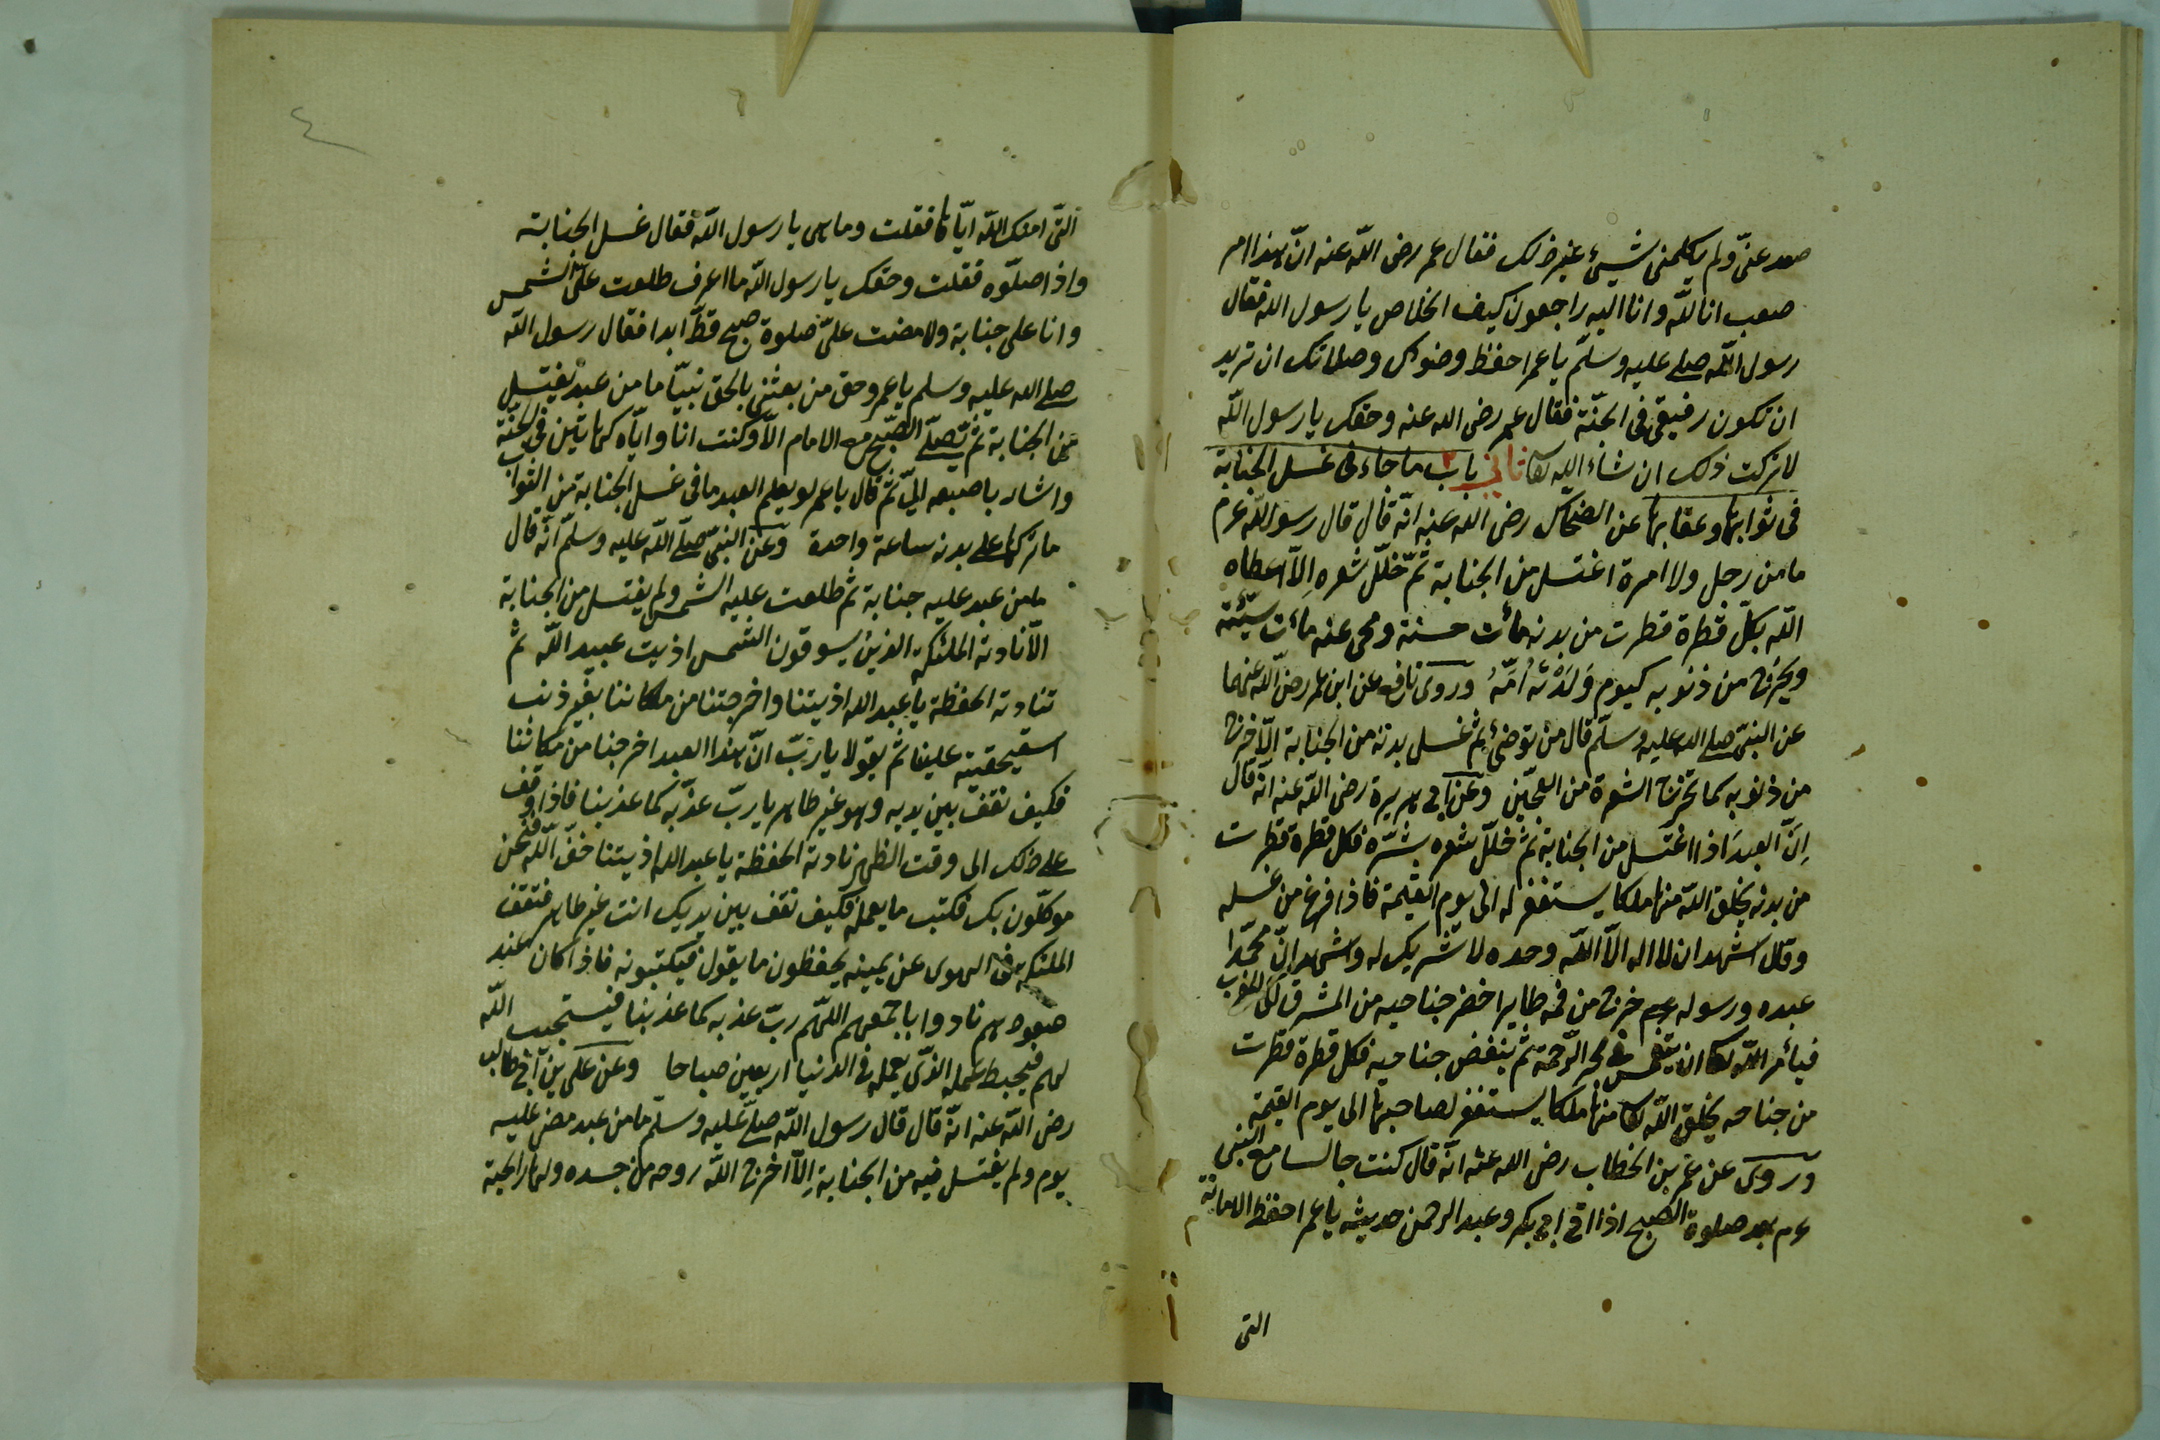 صعد عنّي ولم يكلمني شيئ غير ذلك فقال عمر رضى اللّه عنه انّ هذا امر
صعب انا للّه وانا اليه راجعون كيف الخلاص يا رسول اللّه فقال
رسول اللّه صلى عليه وسلّم يا عمر احفظ وضوئك وصلاتك ان تريد
ان تكون رفيقى فى الجنّة فقال عمر رضى الله عنه وحقك يا رسول اللّه
لا تركت ذلك ان شاء اللّه تعا ثاني باب ما جاء فى غسل الجنابة
فى ثوابها وعقابها عن الضحاك رضى الله عنه انّه قال قال رسول اللّه عم
ما من رجل ولا امرة اغتسل من الجنابة ثمّ خلّل شعره اِلّا اعطاه
اللّه بكلّ قطرة قطرت من بدنه مائت حسنة ومحى عنه مائت سيّئة
ويخرج من ذنوبه كيوم وَلَدَتْهُ اُمّهُ وروى نافع عن ابن عمر رضى اللّه عنهما
عن النبىّ صلى الله عليه وسلّم قال من توضئ ثم غسل بدنه من الجنابة الّا خرج
من ذنوبه كما تخرج الشعرة من العجين وعن ابى هريرة رضى اللّه عنه انّه قال
اِنّ العبدَ اذا اغتسل من الجنابة ثمّ خلّل شعره بشرّه فكل قطرة قطرت
من بدنه يخلق اللّه منها ملكا يستغفر له الى يوم القيمة فاذا فرغ من غسله
وقال اشهد ان لا اله الّا اللّه وحده لا شريك له واشهد انّ محمّدا
عبده ورسوله عم خرج من فمه طايرا خضر جناحيه من المشرق الى المغرب
فيأمر اللّه تعا ان يتغمس فى بحر الرّحمة ثمّ ينفض جناحيه فكل قطرة قطرت
من جناحه يخلق اللّه تعا منها ملكا يستغفر لصاحبها الى يوم القيمة
وروى عن عمر بن الخطاب رضى الله عنه انّه قال كنت جالسا مع النبى
عم بعد صلوة الصبح اذا اتى ابى بكر وعبد الرحمن حديثه يا عمر احفظ الامانة
التى
٤
الّتى امنك اللّه ايّاها فقلت وما هى يا رسول اللّه فقال غسل الجنابة
واذا صلّوه فقلت وحقك يا رسول اللّه ما اعرف طلعت علىّ الشمس
وانا على جنابة ولا مضت علىّ صلوة صبح قطّ ابدا فقال رسول اللّه
صلى الله عليه وسلم يا عمر وحق من بعثنى بالحق نبيّا ما من عبد يغتسل
من الجنابة ثمّ يصلّى الصّبح مع الامام الّا وكنت انا وايّاه كهاتين فى الجنّة
واشار باصبعه الىّ ثمّ قال يا عمر لو يعلم العبد ما فى غسل الجنابة من الثواب
ما تركها على بدنه ساعة واحدة وعن النبىّ صلّى اللّه عليه وسلّم انّه قال
ما من عبد عليه جنابة ثم طلعت عليه الشمس ولم يغتسل من الجنابة
الّا نادته الملئكة الذين يسوقون الشمس اذيت عبيد اللّه ثم
تنادته الحفظة يا عبد الله اذيتنا واخرجتنا من مكاننا بغير ذنب
علينا ثم يقولا يا ربّ انّ هذا العبد اخرجنا من مكاننا
فكيف نقف بين يديه وهو غير طاهر يا ربّ عذّبه كما عذبنا فاذا وقف
على ذلك الى وقت الظهر نادته الحفظة يا عبد الله اذيتنا خف اللّه فنحن
موكلون بك فكتب ما يعمله فكيف نقف بين يديك انت غير طاهر فتقف
الملئكة فى الهوى عن يمينه يحفظون ما يقول فيكتبونه فاذا كان عند
صعودهم نادوا باجمعهم اللّهم ربّ عذبه كما عذبنا فيستجيب اللّه
لهم فيحبط عمله الذى يعمله فى الدنيا اربعين صباحا وعن على بن ابى طالب
رضى اللّه عنه انّه قال قال رسول اللّه صلّى عليه وسلّم ما من عبد مضى عليه
يوم ولم يغتسل فيه من الجنابة اِلّا اخرج اللّه روحه من جسده ولها رايحة